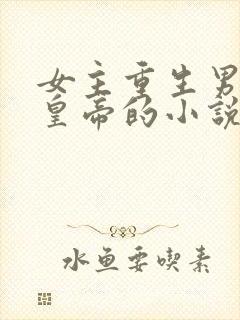 女主重生男
皇帝的小說
水鱼要喫素